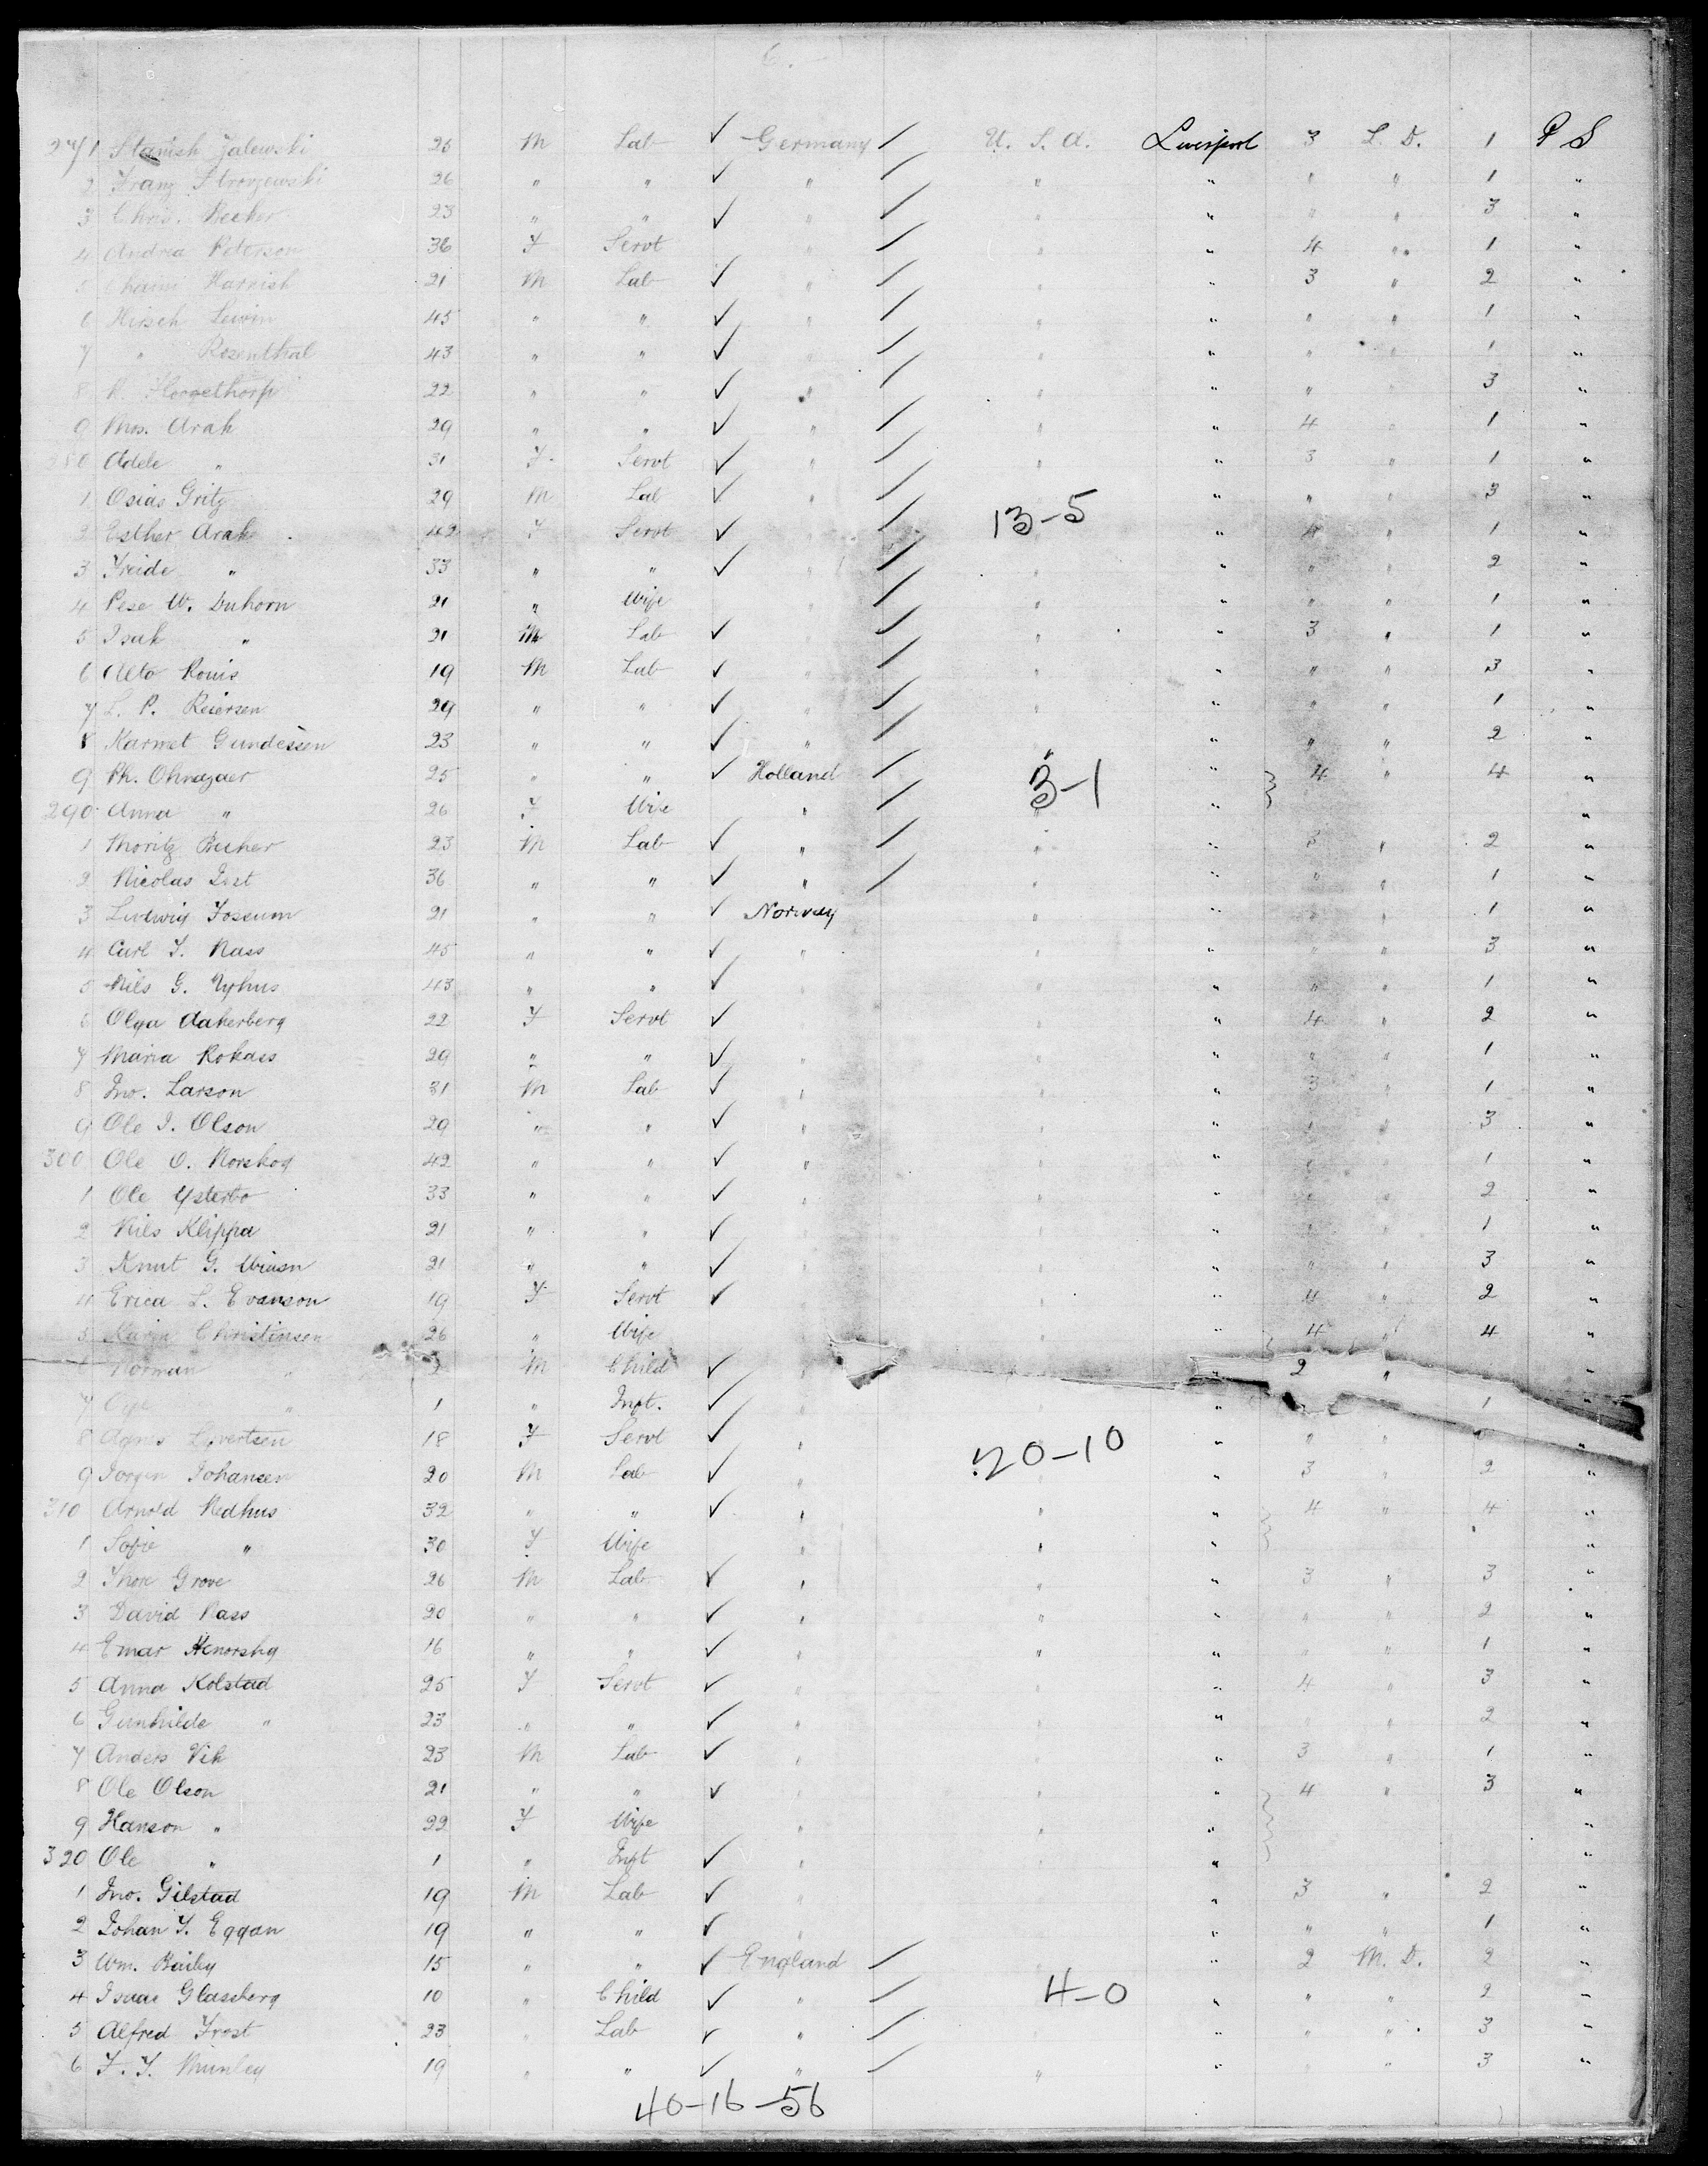 6.
271 Stanish Zalewski 26 M Lab ✓ Germany / U. S. A. Liverpool 3 L. D. 1 P S
2 Franz 26 " " ✓ " / " " " " 1 "
3 Chris. Becker 23 " " ✓ " / " " " " 3 "
4 Andrea Peterson 36 F Servt " / " " 4 " 1 "
5 Chaim Harnish 21 M Lab ✓ / " " 3 " 2 "
6 Hirsch Lewin 45 " " ✓ " / " " " " 1 "
7 " Rosenthal 43 " " ✓ " / " " " " 1 "
8 22 " " ✓ " / " " " 3 "
9 Mos. Arak 29 " " ✓ " / " " 4 " 1 "
280 Adele " 31 F Servt ✓ " / " " 3 " 1 "
1 Osias Gritz 29 M Lab ✓ " / " " " 3 "
13-5
2 Esther Arak 42 F Servt ✓ " / " " 4 " 1 "
3 Freide " 33 " " ✓ " / " " " " 2 "
4 Pese W. Duhorn 21 " Wife " / " " " " 1 "
5 Isak " 21 M Lab ✓ " / " " 3 " 1 "
6 Alto Ronis 19 M Lab ✓ " / " " " " 3 "
7 L. P. Reiersen 29 " " ✓ " / " " " " 1 "
8 Karmet Gundessen 23 " " ✓ " / " " " " 2 "
9 Ph. 25 " " ✓ Holland / " " 4 " 4 "
3-1
290 Anna " 26 F Wife " / " " "
1 Moritz Becher 23 M Lab ✓ " / " " 3 " 2 "
2 Nicolas Jost 36 " " ✓ " / " " " " 1 "
3 Ludwig Fossum 21 " " ✓ Norway " " " " 1 "
4 Carl J. Nass 45 " " ✓ " " " " " 3 "
5 Nils G. Nyhus 43 " " ✓ " " " " " 1 "
6 Olga Aakerberg 22 F Servt ✓ " " " 4 " 2 "
7 Maria Rokass 29 " " ✓ " " " " " 1 "
8 Jno. Larson 31 M Lab ✓ " " " 3 " 1 "
9 Ole J. Olson 29 " " ✓ " " " " " 3 "
300 Ole O. Norskog 42 " " ✓ " " " " " 1 "
1 Ole Ysterbo 33 " " ✓ " " " " " 2 "
2 Nils Klippa 21 " " ✓ " " " " " 1 "
3 Knut G. 21 " " ✓ " " " " " 3 "
4 Erica L. Evanson 19 F Servt ✓ " " " 4 " 2 "
5 Karin Christinsen 26 " Wife " " " 4 " 4 "
6 Norman " 2 M Child ✓ " " 2 "
7 " 1 " Inft. ✓ " " " 1 "
8 Agnes 18 F Servt ✓ " " " " "
20-10
9 Jorgen Johansen 20 M Lab ✓ " " 3 " 2 "
310 Arnold Nedhus 32 " " ✓ " " " 4 " 4 "
1 Sofie " 30 F Wife " " " "
2 Thore Grove 26 M Lab ✓ " " " 3 " 3 "
3 David Nass 20 " " ✓ " " " " " 2 "
4 Emar 16 " " ✓ " " " " " 1 "
5 Anna Kolstad 25 F Servt ✓ " " " 4 " 3 "
6 Gunhilde " 23 " " ✓ " " " " " 2 "
7 Anders Vik 23 M Lab ✓ " " " 3 " 1 "
8 Ole Olson 21 " " ✓ " " " 4 " 3 "
9 Hanson " 22 F Wife " " " "
320 Ole " 1 " Inft ✓ " " " "
1 Jno. Gilstad 19 M Lab ✓ " " 3 " 2 "
2 Johan F. Eggan 19 " " ✓ " " " " 1 "
3 Wm. Baily 15 " " ✓ England / " 2 M. D. 2 "
4 Isaac Glassberg 10 " Child ✓ " / " " " 2 "
4-0
5 Alfred Frost 23 " Lab ✓ " / " " " 3 "
6 F. J. Munley 19 " " ✓ " / " " " " 3 "
40-16-56